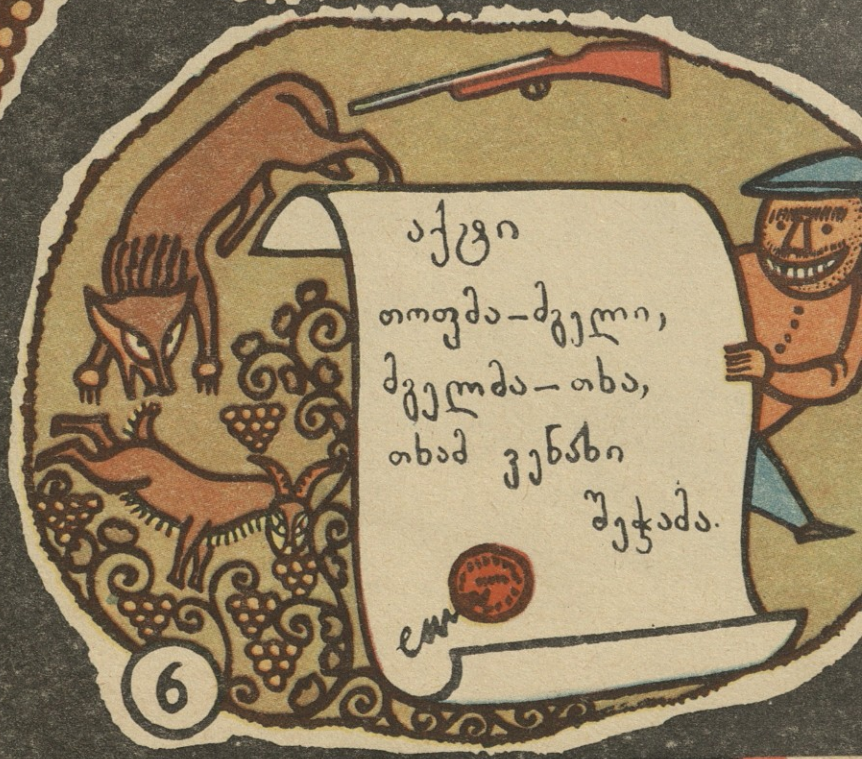 აქტი
თოფმა-მგელი,
მგელმა-თხა,
თხამ ვენახი
შეჭამა.
6